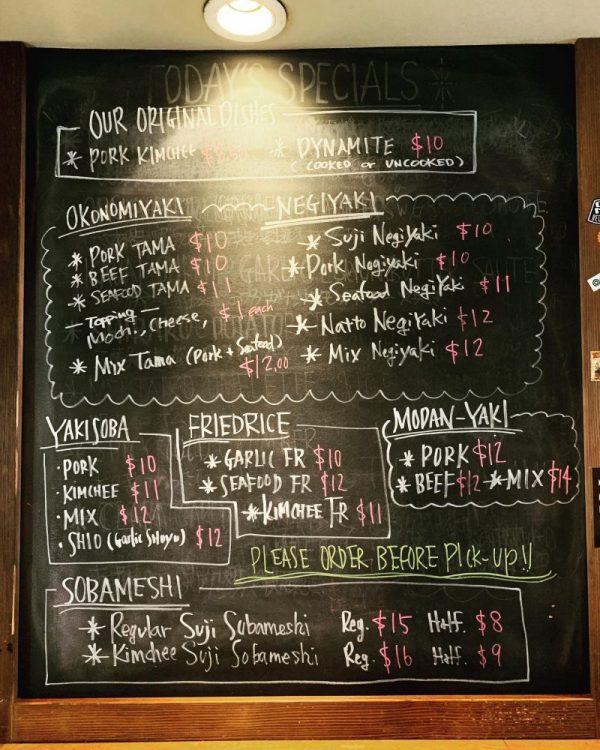 TODAY'S SPECIALS *
OUR ORIGINAL DISHES
* PORK KIMCHEE * DYNAMITE $10
(COOKED or UNCOOKED)
OKONOMIYAKI
* PORK TAMA $10
* BEEF TAMA $10
* SEAFOOD TAMA $11
- Topping -
Mochi, Cheese, $1 each
* Mix Tama (Pork + Seafood)
$12.00
NEGIYAKI
* Suji Negiyaki $10
* Pork Negiyaki $10
* Seafood Negiyaki $11
* Natto Negiyaki $12
* Mix Negiyaki $12
YAKISOBA
· PORK $10
· KIMCHEE $11
· MIX $12
· SHIO (Garlic Shoyu) $12
FRIEDRICE
* GARLIC FR $10
* SEAFOOD FR $12
* KIMCHEE FR $11
MODAN-YAKI
* PORK $12
* BEEF $12 * MIX $14
PLEASE ORDER BEFORE PICK-UP!!
SOBAMESHI
* Regular Suji Sobameshi Reg. $15 Half. $8
* Kimchee Suji Sobameshi Reg. $16 Half. $9